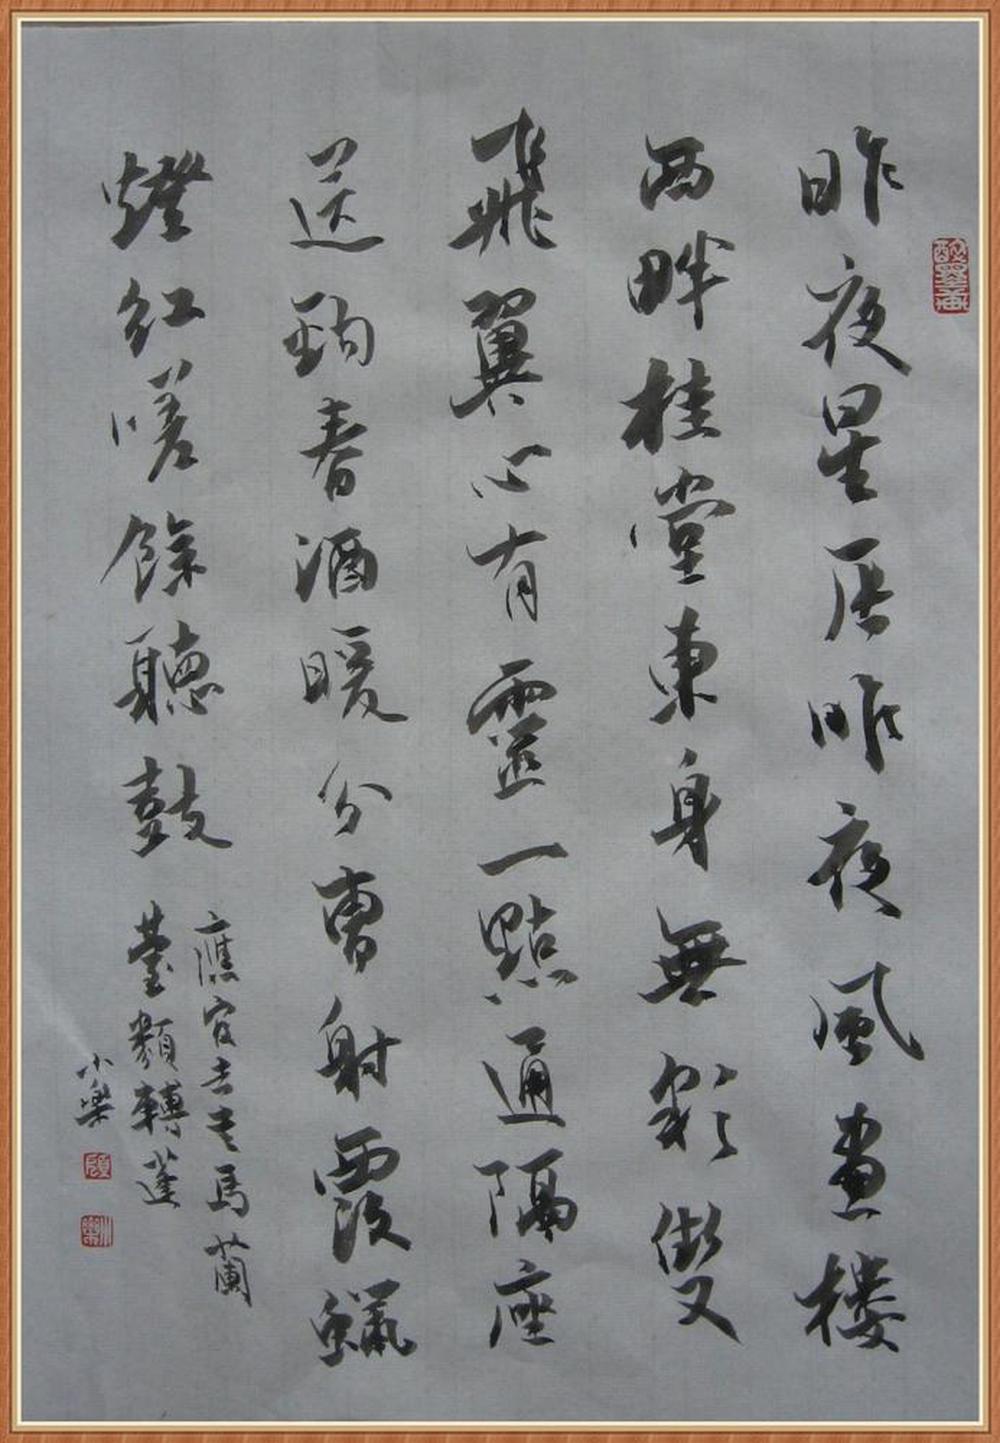 昨夜星辰昨夜風畫楼
西畔桂堂東身無彩雙
飛翼心有靈一點通隔座
送鈎春酒暖分曹射覆蠟
燈紅嗟餘聽鼓
應官去走馬蘭
臺類轉蓬
小樂